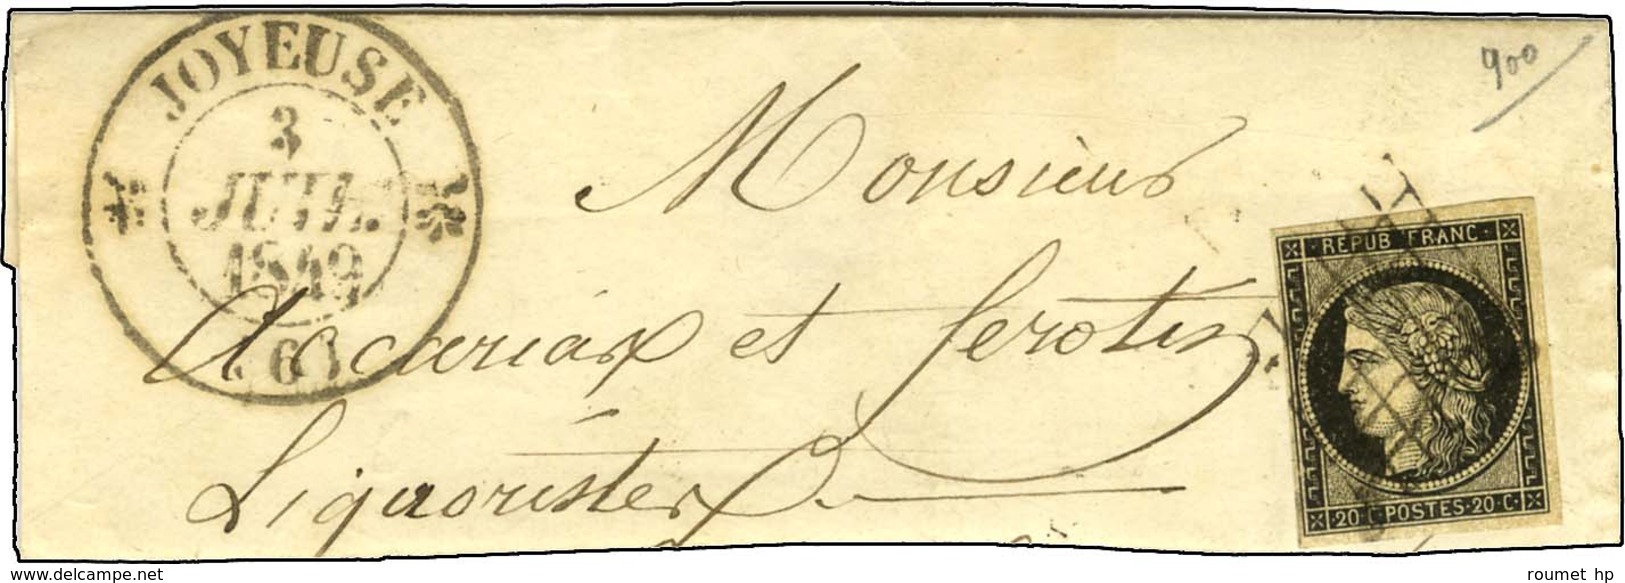 JOYEUSE
3
JUIL.
1849
6
900
Monsieur
Accariax et ferotis
Liquoristes
REPUB FRANC
20 C POSTES 20 C
www.delcampe.net
roumet hp